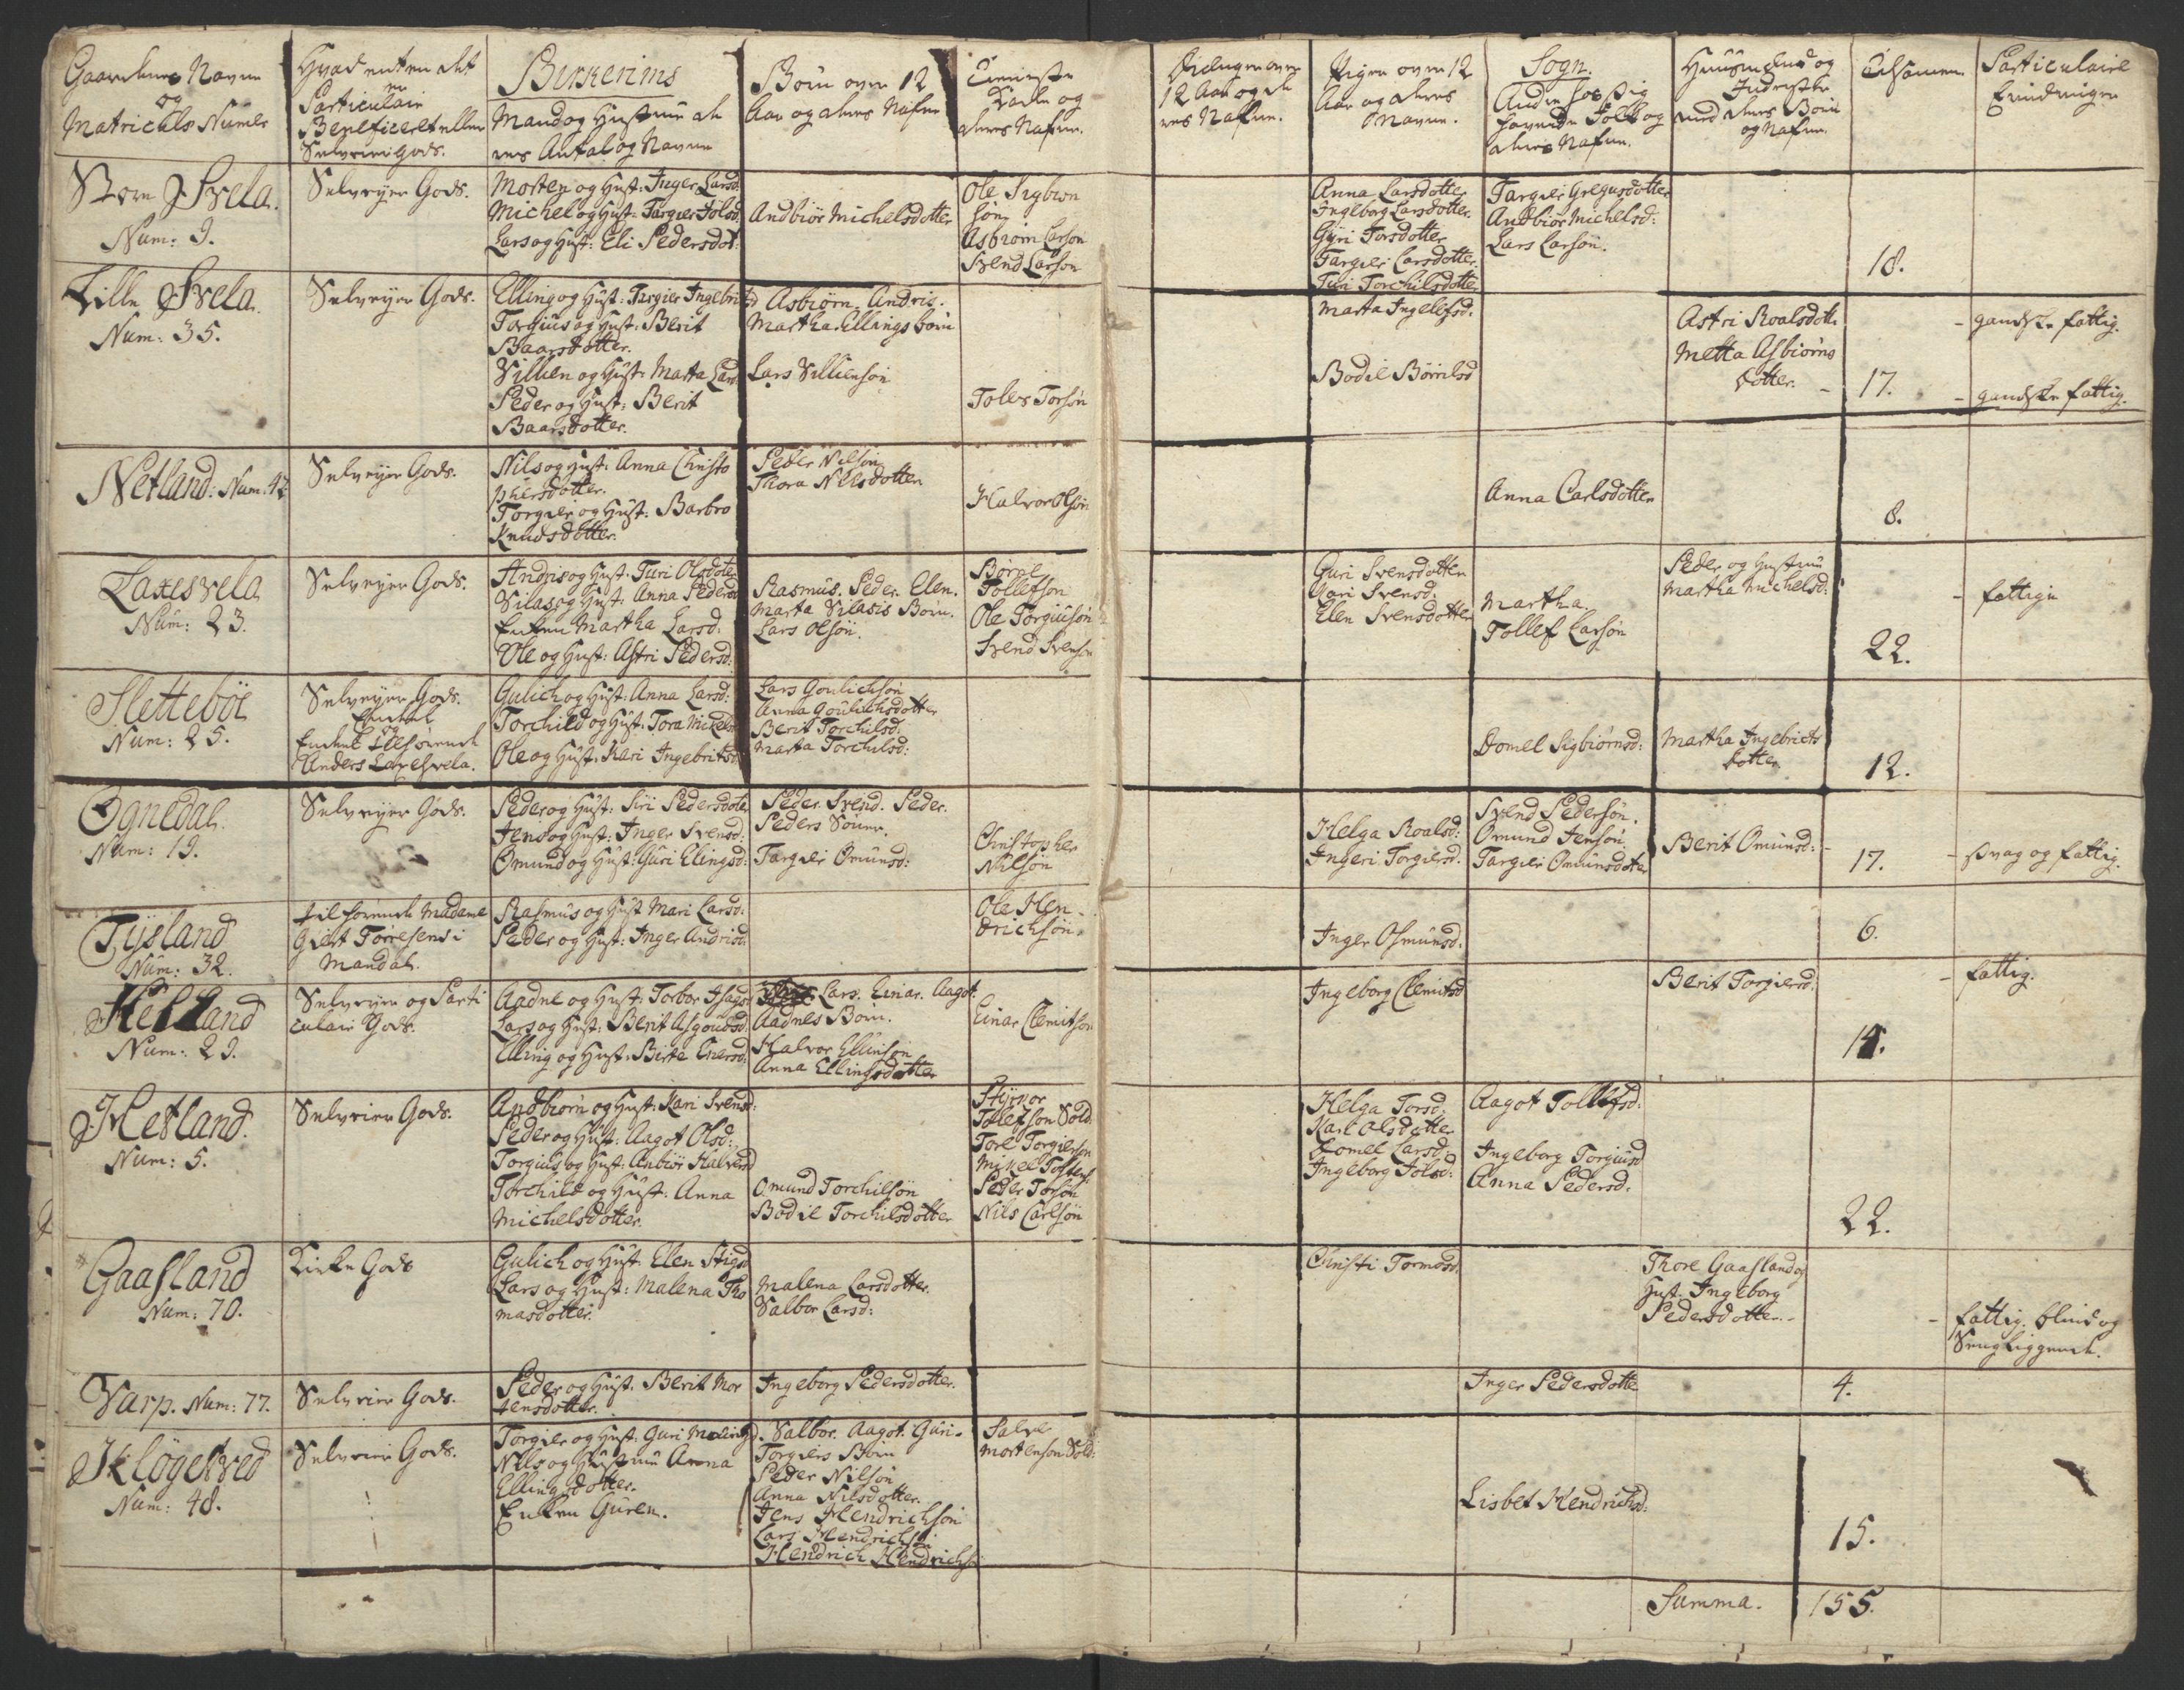 Gaardenes Navne
og
Matrichls Numer
Hvad enten det
er
Particulair
Beneficeret eller
Selveier Gods.
Birkerims
Mand og Hustrue de
res Antal og Navne
Børn over 12
Aar og deres Nafne
Tieniste
Karle og
deres Nafne.
Drenge over
12 Aar og de
res Nafne.
Piger over 12
Aar og deres
Navne.
Sogn.
Andre hos sig
havende Folk og
deres Nafne.
Huusmænd og
Inderster
med deres Børn
og Nafne.
Tilsamen
Particulaire
Erindringer
Store Svela.
Num: 9.
Selveyer Gods.
Morten og Hust: Inger Larsd:
Michel og Hust: Targier Jolsd:
Lars og Hust: Eli Pedersdot:
Andbiör Michelsdotter
Ole Sigbiön
sön
Asbiörn Larsön
Svend Larsön
Anna Larsdotter
Ingeborg Larsdotter.
Gyri Torsdotter
Targier Larsdotter.
Turi Torchilsdotter
Targier Gregusdotter
Andbiör Michelsd:
Lars Larsön.
18.
Lille Svela.
Num: 35.
Selveyer Gods.
Elling og Hust: Targier Ingebritsd
Torgius og Hust: Berit
Baarsdotter.
Villien og Hust: Marta Lars
Peder og Hust: Berit
Baarsdotter.
Asbiörn. Andris.
Martha Ellings börn
Lars Villiensön
Tolev Torsön
Marta Ingelefsd:
Bodil Börrilsd
Astri Roalsdott:
Metta Asbiörns
dotter.
17.
- gandske fattig.
- gandske fattig.
Netland: Num: 42
Selveyer Gods.
Nils og Hust: Anna Christo
phersdotter.
Torgier og Hust: Barbro
Knudsdotter.
Peder Nilsön
Thora Nilsdotter
Halvor Olsön
Anna Carlsdotter
8.
Laxesvela
Num: 23.
Selveyer Gods.
Andris og Hust: Turi Olsdoter
Silas og Hust: Anna Pedersd
Enken Martha Larsd:
Ole og Hust: Astri Pedersd:
Rasmus. Peder. Elen.
Marta Silasis Børn.
Lars Olsön.
Börge
Tollefsön
Ole Torgiusön
Svend Svensön
Guri Svensdotter
Gari Svensd:
Elen Svensdotter
Martha
Tollef Larsön
Peder og Hustrue
Martha Michelsd:
22.
- fattige
Sletteböe
Num: 25.
Selveyer Gods.
Anders Laxesvela.
Gulich og Hust: Anna Larsd:
Torchild og Hust: Tora Mickelsd
Ole og Hust: Kari Ingebritsd
Lars Goulichsön
Anna Goulichsdotter
Berit Torchilsd:
Marta Torchilsd:
Domel Sigbiörnsd:
Martha Ingebricts
dotter
12.
Ognedal.
Num: 19.
Selveyer Gods.
Peder og Hust: Siri Pedersdoter
Jens og Hust: Inger Svensd:
Omund og Hust: Guri Elingsd:
Peder. Svend. Peder.
Peders Sönner.
Targier Omunsd:
Christopher
Nilsön
Helga Roalsd:
Ingeri Torgiersd:
Svend Pedersön.
Omund Jensön.
Targier Omunsdotter
Berit Omunsd:
17.
- svag og fattig.
Tysland
Num: 32.
tilhörende Madame
Giert Törresens i
Mandal.
Rasmus og Hust Mari Larsd:
Peder og Hust: Inger Andrisd:
Ole Hen
drichsön.
Inger Osmunsd:
6.
Helland
Num: 29.
Selveyer og Parti
culair Gods.
Aadne og Hust: Torbor Isagsd
Lars og Hust: Berit Asgoudsd:
Elling og Hust: Birte Enersd:
Lars. Einar. Aagot.
Aadnes Børn.
Halvor Ellinsön
Anna Ellingsdotter
Einar Clemitsön
Ingeborg Clemitsd
Berit Torgiersd:
14.
- fattig.
Hetland.
Num: 5.
Selveier Gods.
Andbiörn og Hust: Kari Svensd:
Peder og Hust: Aagot Olsd:
Torgius og Hust: Anbiör Halversd
Torchild og Hust: Anna
Michelsdotter.
Omund Torchilsön
Bodil Torchilsdotter
Tolefsön Sold:
Tore Torgiersön
Mikel Tolstens:
Peder Torsön
Nils Carlsön
Helga Torsd:
Kari Olsdotter
Domel Larsd:
Ingeborg Jolsd:
Aagot Tollefsd:
Ingeborg Torgiusd
Anna Pedersd:
22.
Gaasland
Num: 70.
Kirke Gods
Gulich og Hust: Elen Stigsd
Lars og Hust: Malena Tho
masdotter.
Malena Larsdotter.
Salbor Larsd:
Christi Tormodsd:
Thore Gaasland og
Hust: Ingeborg
Pedersdotter.
- fattig. blind og
Sengliggende.
Varp. Num: 77.
Selveier Gods.
Peder og Hust. Berit Mor
tensdotter.
Ingeborg Pedersdotter.
Inger Pedersdotte
4.
Sklögetved
Num: 48.
Selveier Gods.
Torgier og Hust: Guri
Nils og Hustrue Anna
Ellingsdotter.
Enken Guren.
Salbor. Aagot. Guri.
Torgiers Børn
Peder Nilsön
Anna Nilsdotter.
Jens Hendrichsön
Lars Hendrichsön
Hendrich Hendrichsö
Salve
Mortensön Sold:
Lisbet Hendrichsd:
15.
Summa.
155.